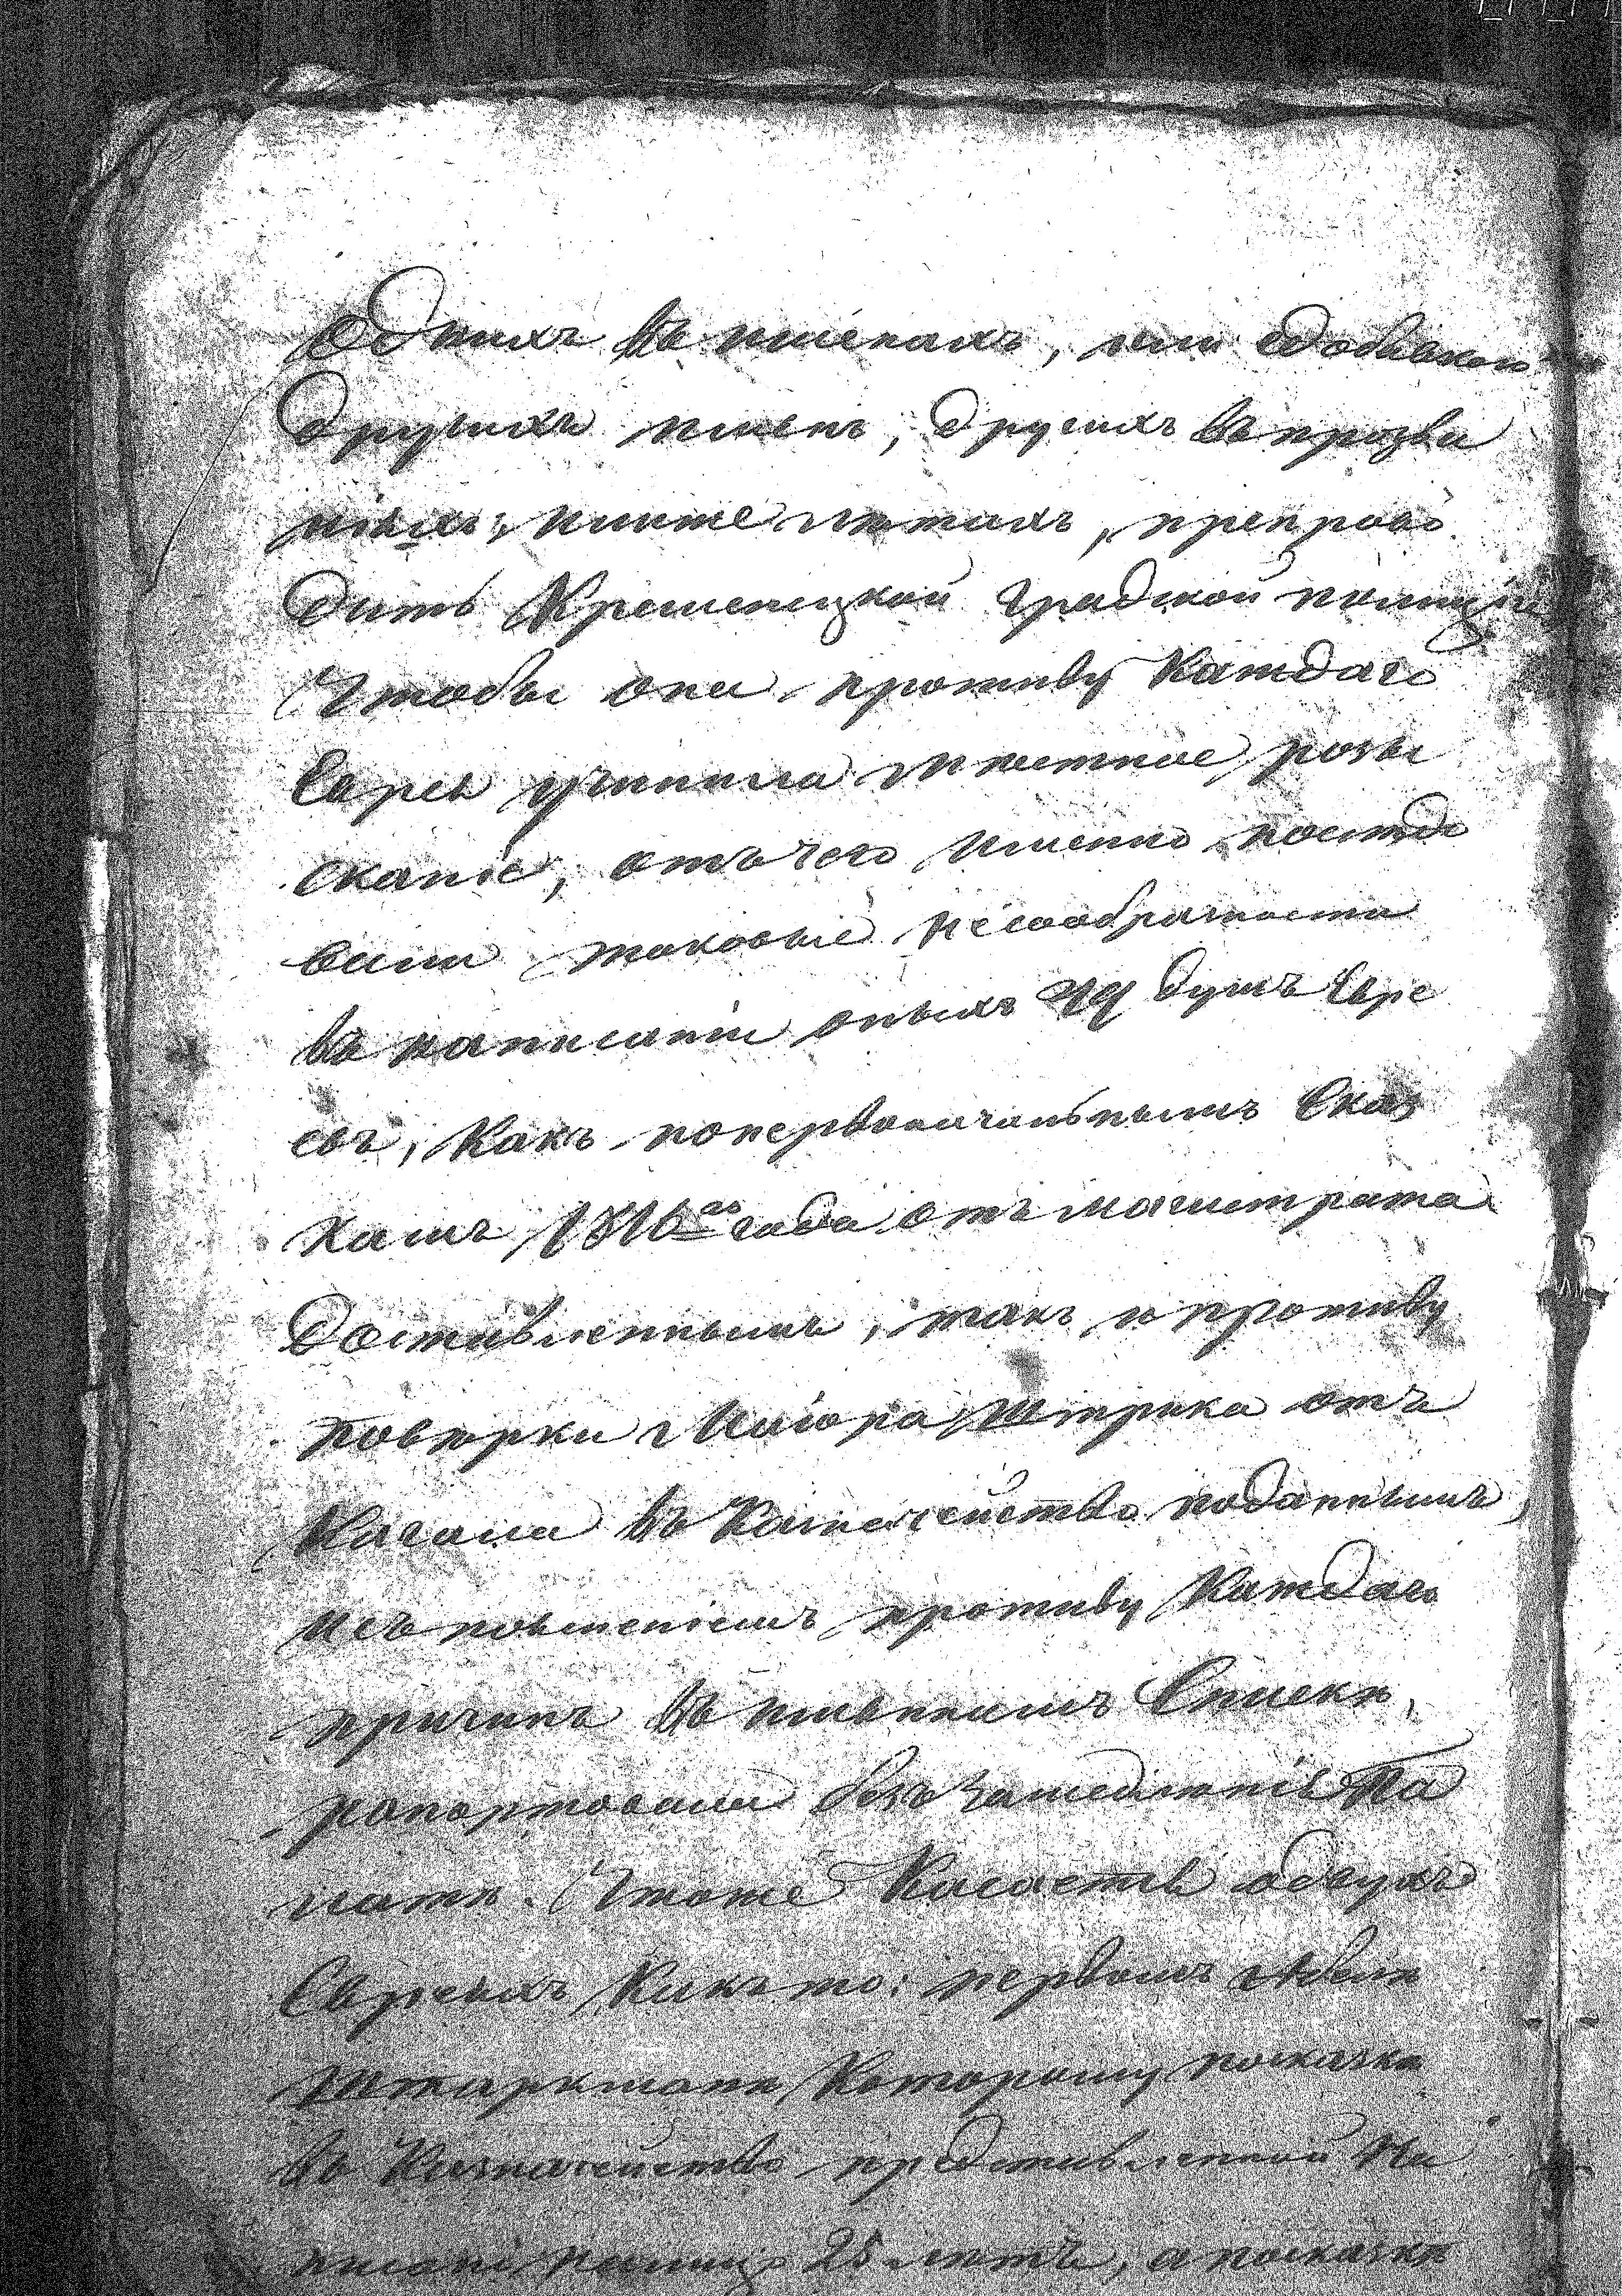 однихъ въ именахъ, или здобавкою
другихъ именъ, другихъ въ прозва
ніяхъ; иныхъ лѣтахъ, препрово
дить Кременецкой градской полиціи
Чтобы она противу каждаго
Еврея учинила мѣстное розы
сканіе, отъ чего именно послѣдо
вали таковые несообразности
въ написаніи оныхъ душъ Евре
евъ, какъ по первоначальнымъ Сказ
камъ 1816го года отъ магистрата
доставленнымъ, такъ и противу
повѣрки Маіора Штрика отъ
Кагала въ Казначейство поданнымъ,
и съ поясненіемъ противу каждаго
причинъ въ именномъ Спискѣ,
рапортовала безъ замедленія Па
латѣ. Чтоже касается обдвухъ
Евреяхъ какъ то: первомъ Абелѣ
Штаркманѣ которому посказкѣ
въ Казначейство представленной На
писано 25 лѣтъ, а посказкѣ